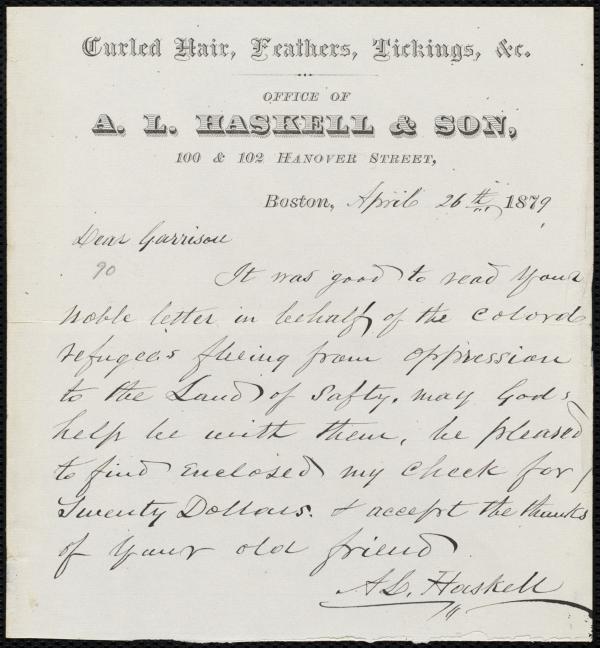 Curled Hair, Feathers, Tickings, &c.
OFFICE OF
A. L. HASKELL & SON,
100 & 102 HANOVER STREET,
Boston, April 26th 1879
Dear Garrison
90
It was good to read your
noble letter in behalf of the colord
refugees fleeing from oppression
to the Land of Safty. may Gods
help be with them, be pleased
to find enclosed my check for
Twenty Dollars. & accept the thanks
of your old friend
A L. Haskell